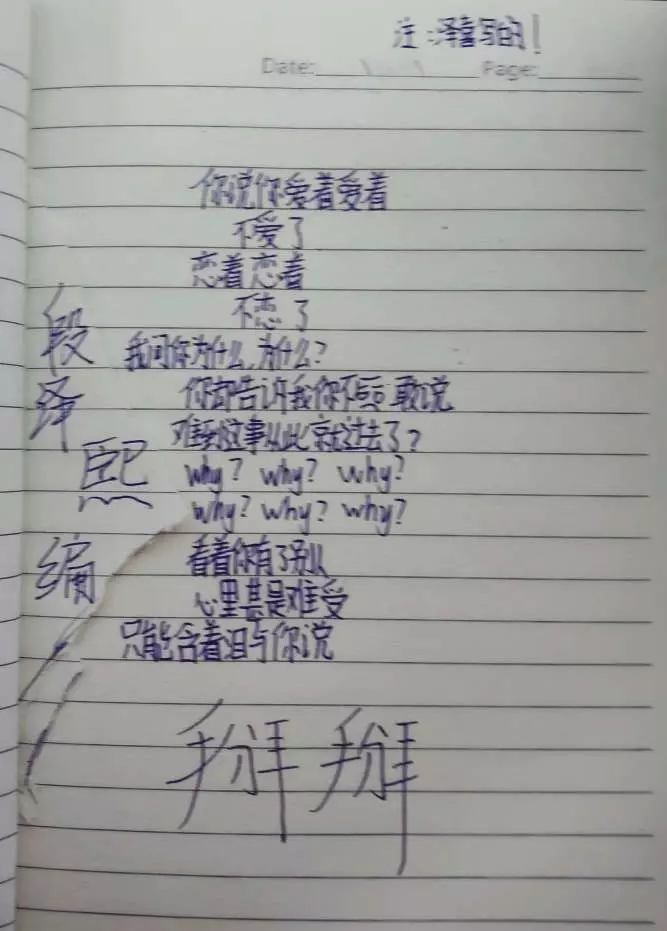 注:泽喜写的!
Date: Page:
你说你爱着爱着
不爱了
恋着恋着
不恋了
我问你为什么,为什么?
你却告诉我你不敢说
难到这事从此就过去了?
why? why? why?
why? why? why?
看着你有了别人
心里甚是难受
只能含着泪与你说
掰掰
段泽熙编